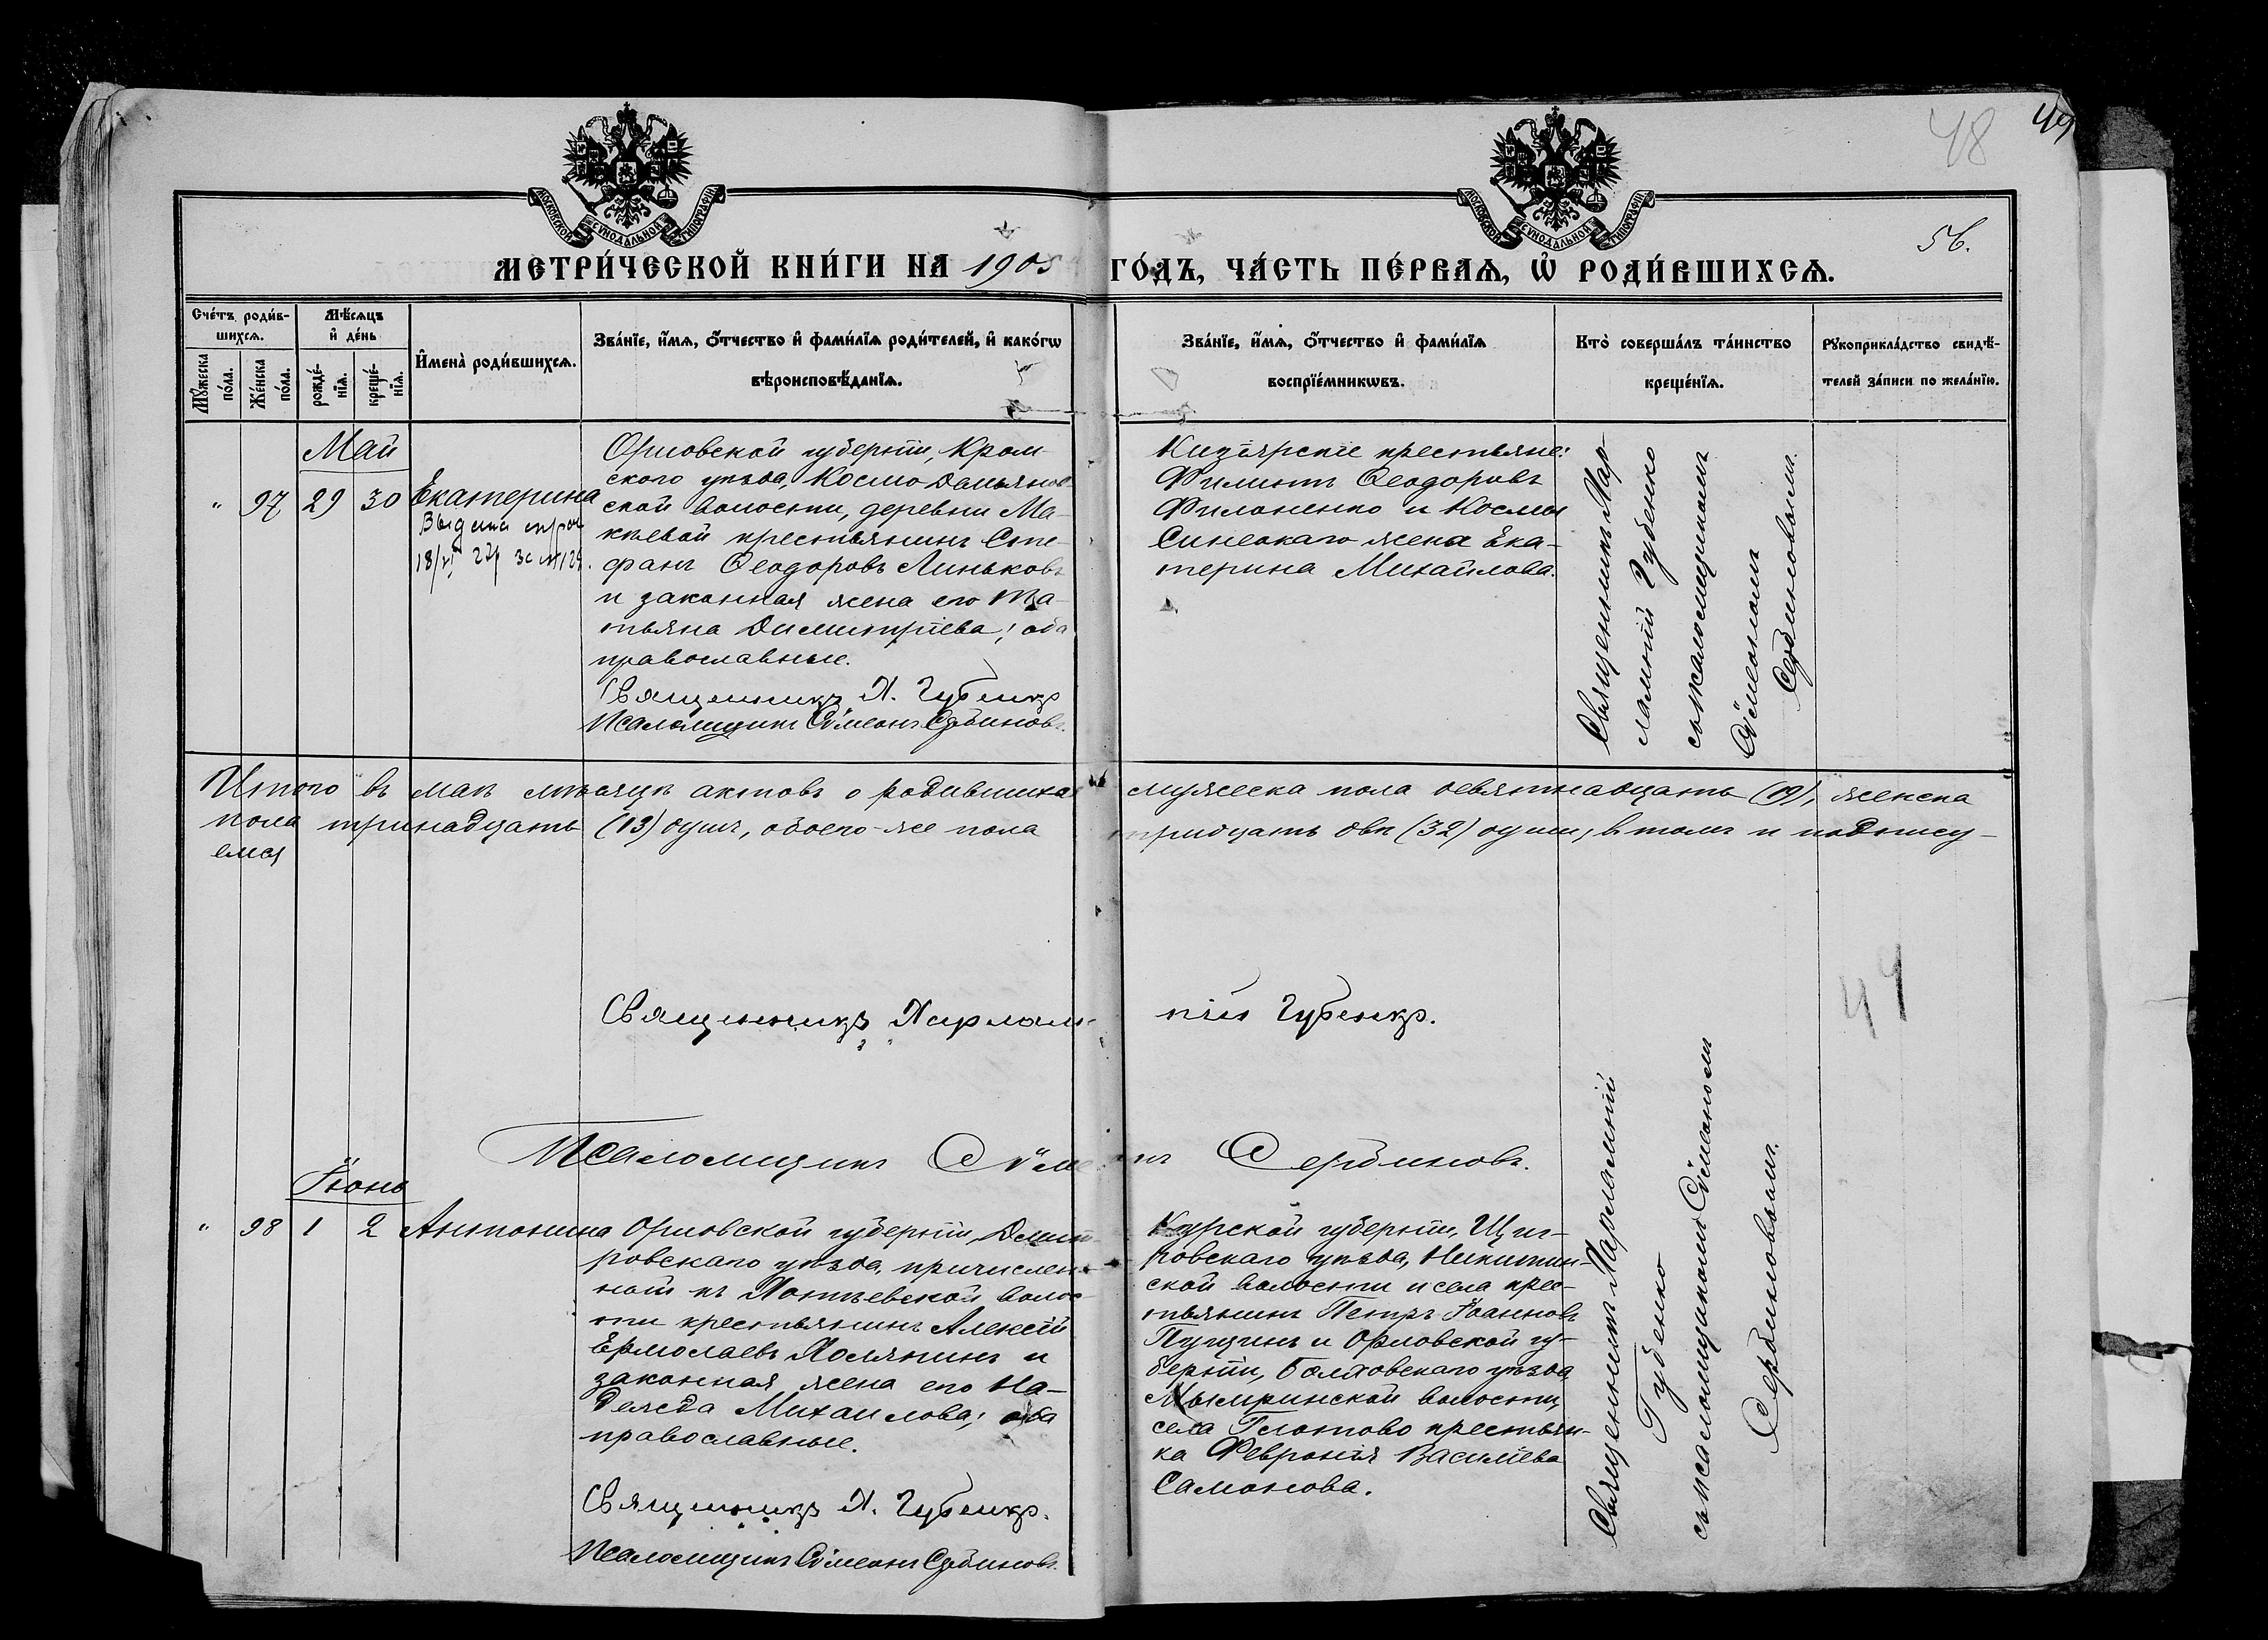 48
49
МОСКОВСКОЙ СѴНОДАЛЬНОЙ ТИПОГРАФІИ
МОСКОВСКОЙ СѴНОДАЛЬНОЙ ТИПОГРАФІИ
56.
МЕТРИ́ЧЕСКОЙ КНИ́ГИ НА 1905 ГО́ДЪ, ЧА́СТЬ ПЕ́РВАѦ, Ѡ҆ РОДИ́ВШИХСѦ.
Сче́тъ роди́в-
шихсѧ.
Мꙋ́жеска
по́ла.
Же́нска
по́ла.
Мѣ́сѧцъ
и҆ де́нь
рожде́-
нїѧ.
креще́-
нїѧ.
И҆мена̀ роди́вшихсѧ.
Зва́нїе, и҆́мѧ, ѻ҆́тчество и҆ фами́лїѧ роди́телей, и҆ како́гѡ
вѣроисповѣ́данїѧ.
Зва́нїе, и҆́мѧ, ѻ҆́тчество и҆ фами́лїѧ
воспрїе́мникѡвъ.
Кто̀ соверша́лъ та́инство
креще́нїѧ.
Рꙋкоприкла́дство свидѣ́-
телей за́писи по жела́нїю.
Май
" 97 29 30 Екатерина
18/VI
Орловской губерніи, Кром-
скаго уѣзда, Космо Дамьянов-
ской волости, деревни Ма-
кѣевой крестьянинъ Сте-
фанъ Ѳеодоровъ Линьковъ
и законная жена его Та-
тьяна Димитріева; оба
православные.
Священникъ Х. Губенко
Псаломщикъ Сѵмеонъ Сербиновъ.
Кизіярскіе крестьяне:
Филиппъ Ѳеодоровъ
Филоненко и Космы
Синенкаго жена Ека-
терина Михайлова.
Священникъ Хар-
лампій Губенко
съ псаломщикомъ
Сѵмеономъ
Сербиновымъ.
Итого въ маѣ мѣсяцѣ актовъ о родившихся мужеска пола девятнадцать (19), женска
пола тринадцать (13) душъ, обоего-же пола тридцать двѣ (32) души, въ томъ и подпису-
емся
Священникъ Харлам-
пій Губенко.
44
Псаломщикъ Сѵмеонъ Сербиновъ.
Іюнь
" 98 1 2 Антонина
Орловской губерніи, Дмит-
ровскаго уѣзда, причислен-
ный къ волос-
ти крестьянинъ Алексѣй
Ермолаевъ Холянинъ и
законная жена его На-
дежда Михаилова; оба
православные.
Священникъ Х. Губенко.
Псаломщикъ Сѵмеонъ Сербиновъ.
Курской губерніи, Щиг-
ровскаго уѣзда, Никитин-
ской волости и села крес-
тьянинъ Петръ Іоанновъ
Пущинъ и Орловской гу-
берніи, Болховскаго уѣзда,
Мымринской волости,
села Глотово крестьян-
ка Февронія Василіева
Самонова.
Священникъ Харлампій
Губенко
съ псаломщикомъ Сѵмеономъ
Сербиновымъ.